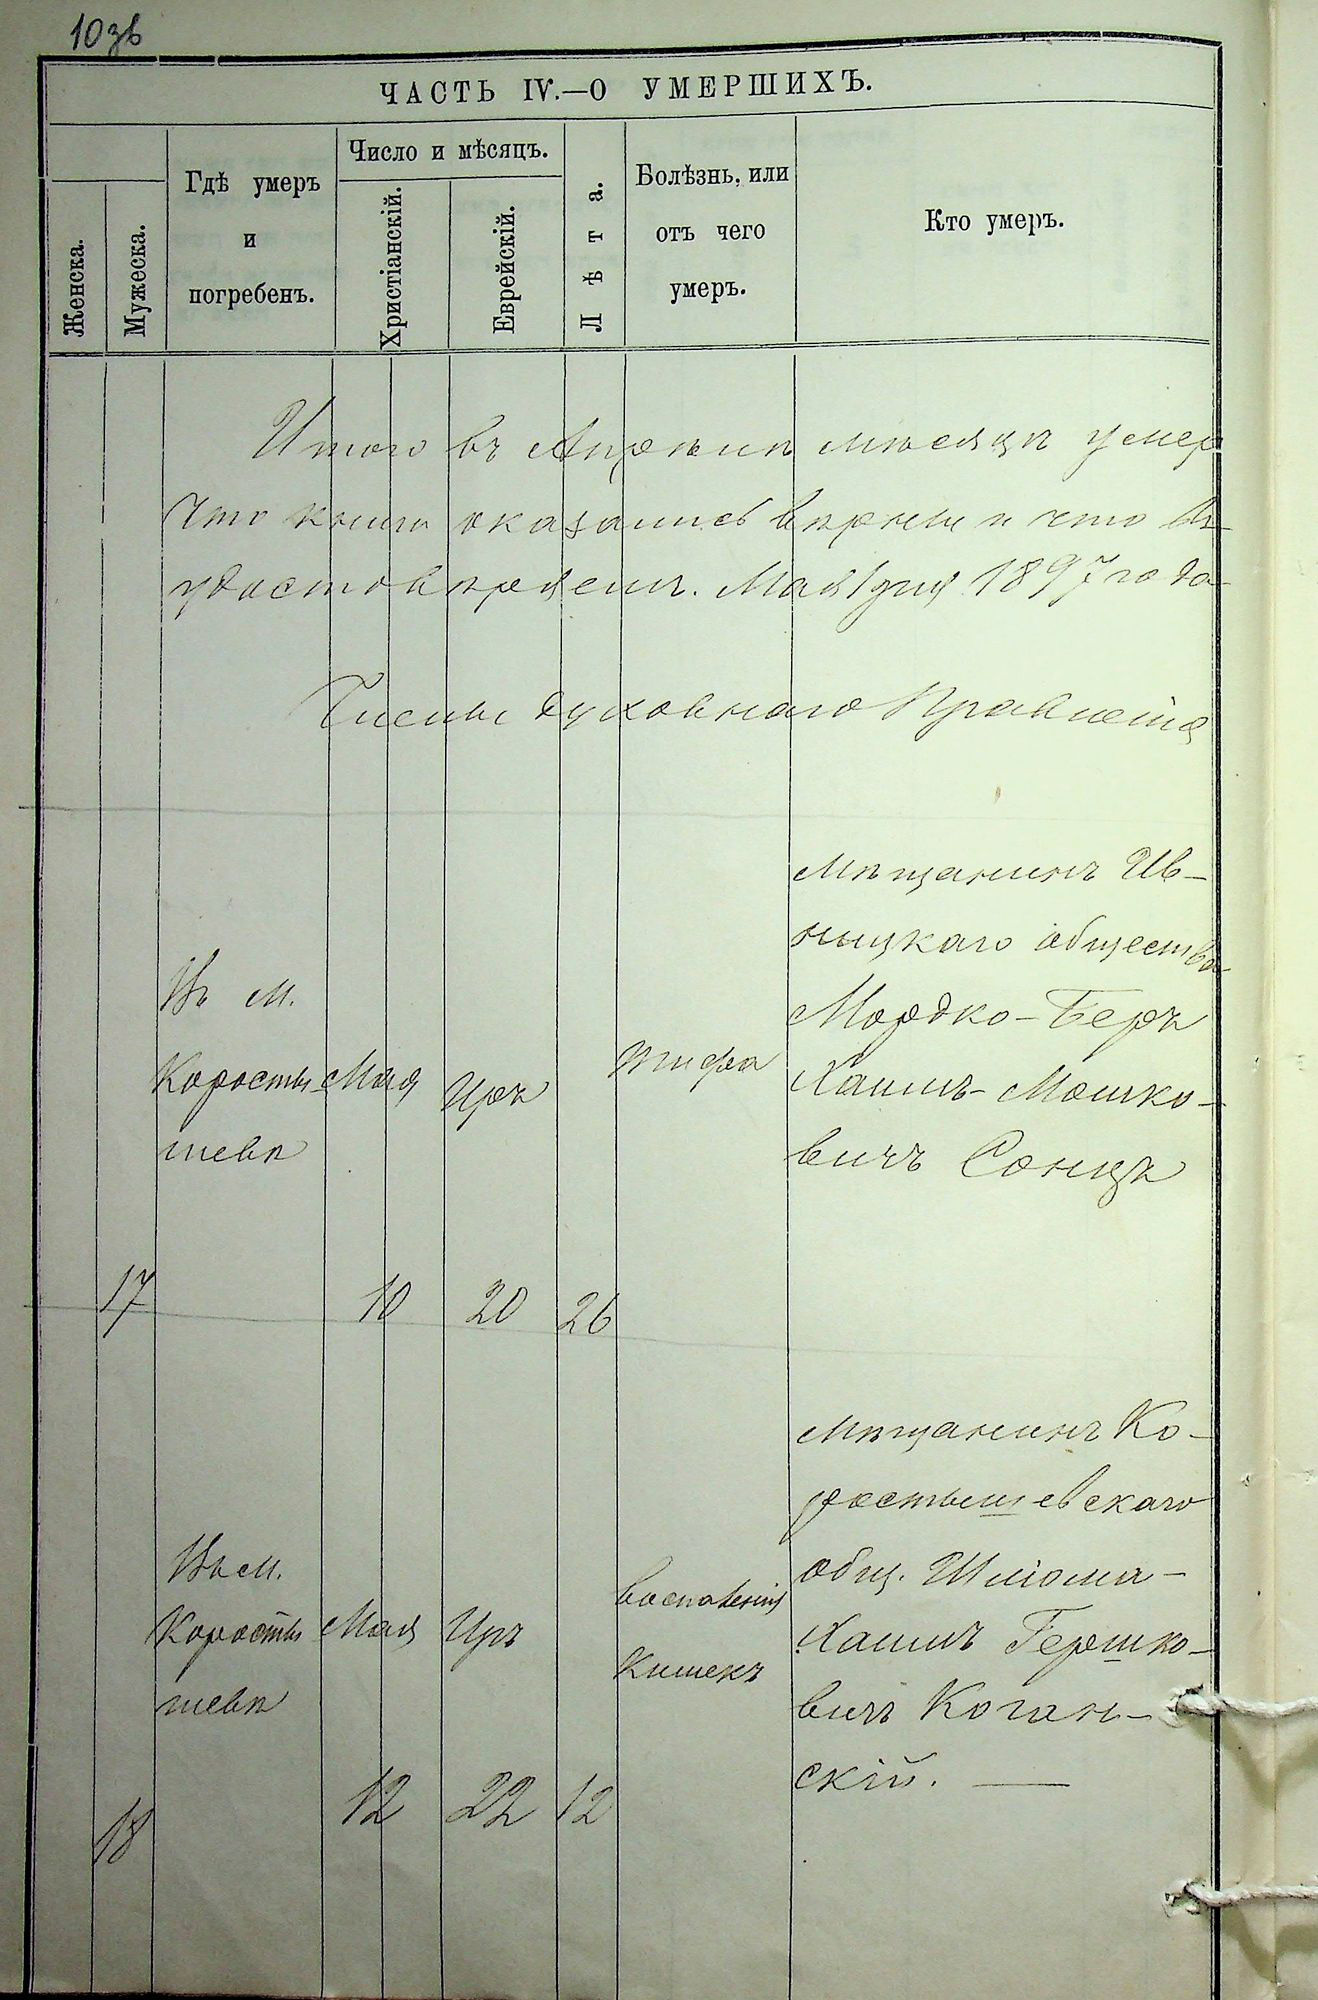 10зв
ЧАСТЬ IV.—О УМЕРШИХЪ.
Женска.
Мужеска.
Гдѣ умеръ
и
погребенъ.
Число и мѣсяцъ.
Христіанскій.
Еврейскій.
Лѣта.
Болѣзнь, или
отъ чего
умеръ.
Кто умеръ.
Итого въ Апрѣлѣ мѣсяцѣ умер
что книги оказались вѣрны и что
удостовѣряемъ. Мая 1 дня 1897 года
Члены Духовнаго Правленія
17
Въ м.
Коросты
шевѣ
Мая
10
Иръ
20
26
тифа
мѣщанинъ Ив-
ницкаго общества
Мордко-Беръ
Хаимъ Мошко-
вичъ Сонцъ
18
Въ м.
Коросты
шевѣ
Мая
12
Иръ
22
12
воспаленія
кишекъ
мѣщанинъ Ко-
ростышевскаго
общ. Шліома-
Хаимъ Гершко-
вичъ Коган-
скій. —